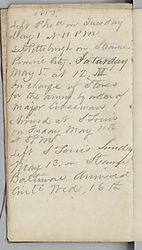 1855.
Left Phila on Tuesday
May 1 at 11 P.M.
Left Pittsburgh on Steamer
Prairie City. Saturday
May 5. at 12. M
In charge of Stores
for the army by order of
Major Crossman
Arrived at St Louis
on Friday May 11th
at 8 P.M.
Left St Louis Sunday
May 13, on Steamer
Baltimore Arrived
Wed, 16th